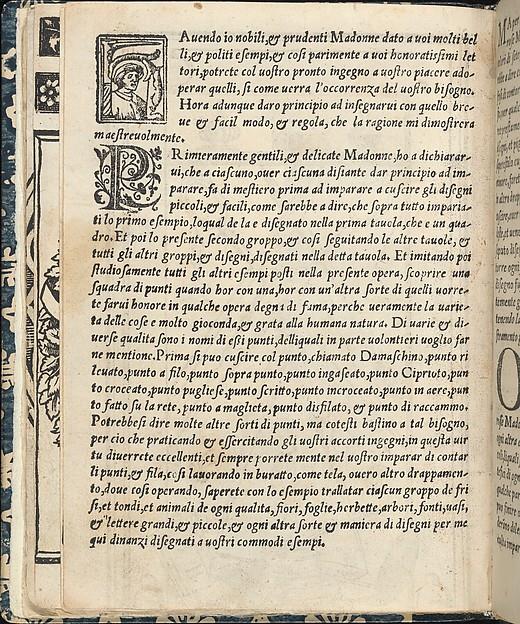 Auendo io nobili,& prudenti Madonne dato a uoi molti bel
li,& politi esempi,& cosi parimente a uoi honoratissimi let
tori,potrete col uostro pronto ingegno a uostro piacere ado-
perar quelli, si come uerra l'occorrenza del uostro bisogno.
Hora adunque daro principio ad insegnarui con quello bre-
ue & facil modo, & regola, che la ragione mi dimostrera
maestreuolmente.
PRimeramente gentili,& delicate Madonne,ho a dichiarar-
ui,che a ciascuno,ouer ciascuna disiante dar principio ad im-
parare,fa di mestiero prima ad imparare a cuscire gli disegni
piccoli,& facili,come sarebbe a dire,che sopra tutto imparia-
ti lo primo esempio,loqual de la e disegnato nella prima tauola,che e un qua-
dro. Et poi lo presente secondo groppo,& cosi seguitando le altre tauole, &
tutti gli altri groppi,& disegni,disegnati nella detta tauola. Et imitando poi
studiosamente tutti gli altri esempi posti nella presente opera, scoprire una
squadra di punti quando hor con una,hor con un'altra sorte di quelli uorre-
te farui honore in qualche opera degna di fama,perche ueramente la uarie-
ta delle cose e molto gioconda,& grata alla humana natura. Di uarie & di-
uerse qualita sono i nomi di essi punti,delliquali in parte uolontieri uoglio far
ne mentione.Prima si puo cuscire col punto,chiamato Damaschino,punto ri
leuato,punto a filo,punto sopra punto,punto ingaseato,punto Ciprioto,pun
to croceato,punto pugliese,punto scritto,punto incroceato,punto in aere,pun
to fatto su la rete, punto a maglieta,punto disfilato, & punto di raccammo.
Potrebbesi dire molte altre sorti di punti, ma cotesti bastino a tal bisogno,
per cio che praticando & essercitando gli uostri accorti ingegni,in questa uir
tu diuerrete eccellenti,et sempre porrete mente nel uostro imparar di contar
li punti,& fila,cosi lauorando in buratto,come tela, ouero altro drappamen-
to,doue cosi operando, saperete con lo esempio trallatar ciascun groppo de fri
si,et tondi,et animali de ogni qualita, fiori, foglie,herbette,arbori, fonti,uasi,
& lettere grandi,& piccole,& ogni altra sorte & maniera di disegni per me
qui dinanzi disegnati a uostri commodi esempi.